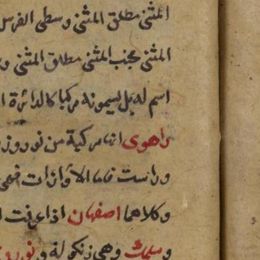 المثنى مطلق المثنى وسطى الفرس
المثنى مجنب المثنى مطلق المثنى و
اسم له بل يسمونه مركبا كالدائرة ا
راهوى انها مركبة من نوروز
وراست فاما الاوازات فهى
وكلاهما اصفهان اذا عرفت ا
وسلمك وهى زنكوله ونوروز